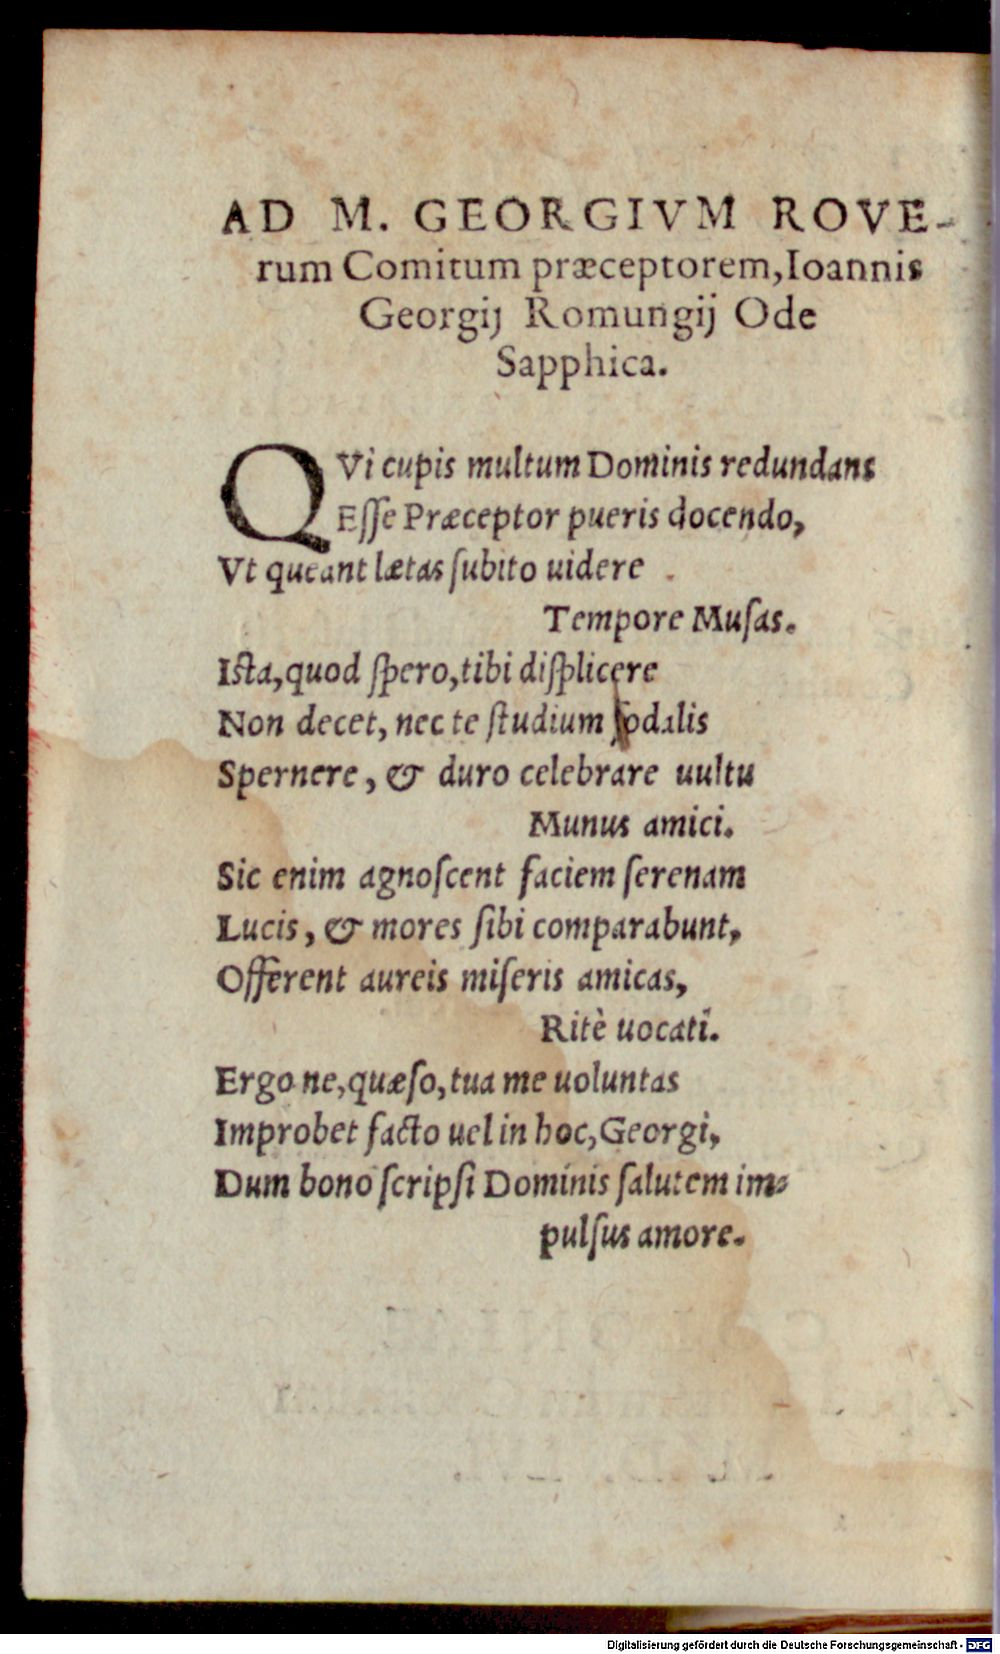 AD M. GEORGIVM ROVE-
rum Comitum præceptorem, Ioannis
Georgij Romungij Ode
Sapphica.
QVi cupis multum Dominis redundans
Eſſe Præceptor pueris docendo,
Vt queant lætas ſubito uidere
Tempore Muſas.
Iſta, quod ſpero, tibi diſplicere
Non decet, nec te ſtudium ſodalis
Spernere, & duro celebrare uultu
Munus amici.
Sic enim agnoſcent faciem ſerenam
Lucis, & mores ſibi comparabunt,
Offerent aureis miſeris amicas,
Ritè uocati.
Ergo ne, quæſo, tua me uoluntas
Improbet facto uel in hoc, Georgi,
Dum bono ſcripſi Dominis ſalutem im-
pulſus amore.
Digitalisierung gefördert durch die Deutsche Forschungsgemeinschaft - DFG